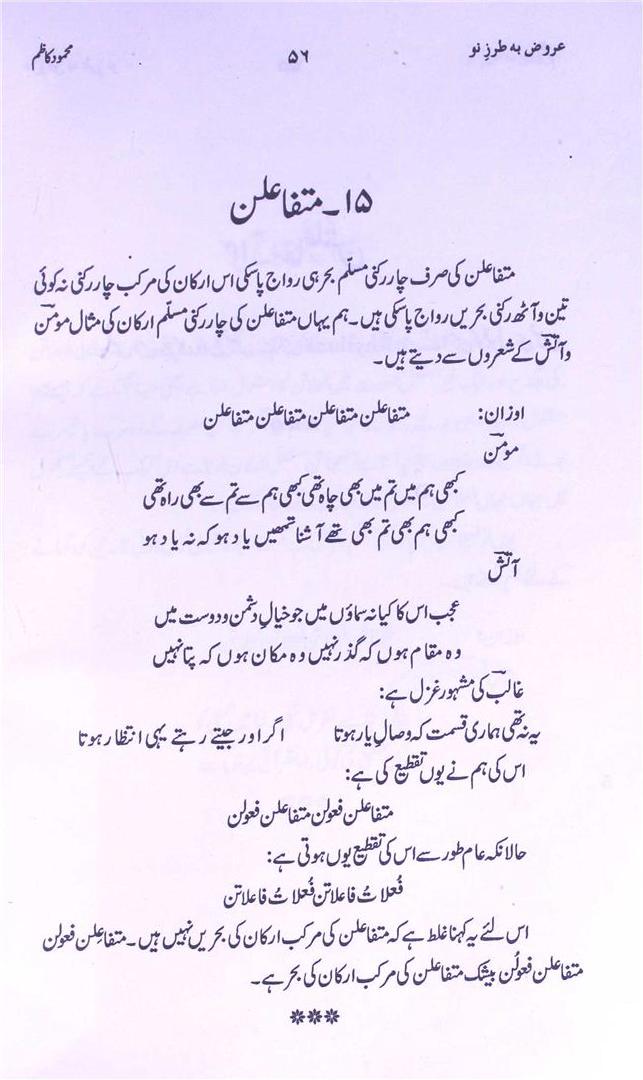 عروض بہ طرزِ نو ۵۶ محمود کاظم
۱۵۔ متفاعلن
متفاعلن کی صرف چار رکنی مسلّم بحر ہی رواج پا سکی اس ارکان کی مرکب چار رکنی نہ کوئی
تین و آٹھ رکنی بحریں رواج پا سکی ہیں۔ ہم یہاں متفاعلن کی چار رکنی مسلّم ارکان کی مثال مومنؔ
و آتشؔ کے شعروں سے دیتے ہیں۔
اوزان: متفاعلن متفاعلن متفاعلن متفاعلن
مومنؔ
کبھی ہم میں تم میں بھی چاہ تھی کبھی ہم سے تم سے بھی راہ تھی
کبھی ہم بھی تم بھی تھے آشنا تمھیں یاد ہو کہ نہ یاد ہو
آتشؔ
عجب اس کا کیا نہ سماؤں میں جو خیالِ دشمن و دوست میں
وہ مقام ہوں کہ گذر نہیں وہ مکان ہوں کہ پتا نہیں
غالبؔ کی مشہور غزل ہے:
یہ نہ تھی ہماری قسمت کہ وصالِ یار ہوتا اگر اور جیتے رہتے یہی انتظار ہوتا
اس کی ہم نے یوں تقطیع کی ہے:
متفاعلن فعولن متفاعلن فعولن
حالانکہ عام طور سے اس کی تقطیع یوں ہوتی ہے:
فُعلاتُ فاعلاتن فُعلاتُ فاعلاتن
اس لئے یہ کہنا غلط ہے کہ متفاعلن کی مرکب ارکان کی بحریں نہیں ہیں۔ متفاعِلن فعولن
متفاعلن فعوُلن بیشک متفاعلن کی مرکب ارکان کی بحر ہے۔
***